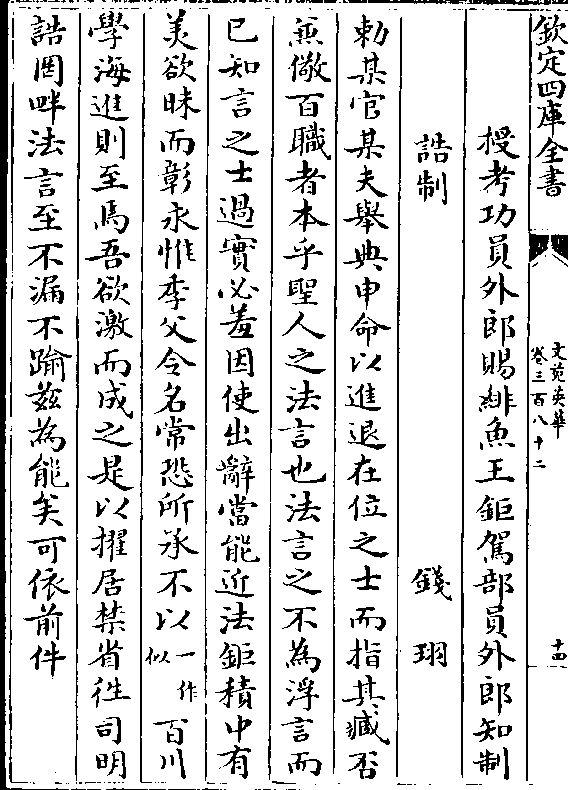 欽定四庫全書
文苑英華
卷三百八十二
十四
授考功員外郎賜緋魚王鉅駕部員外郎知制
誥制
錢珝
勅某官某夫舉典申命以進退在位之士而指其臧否
兼儆百職者本乎聖人之法言也法言之不為浮言而
已知言之士過實必羞因使出辭當能近法鉅積中有
美欲昧而彰永惟季父令名常恐所承不以一作似百川
學海進則至焉吾欲激而成之是以擢居禁省徃司明
誥罔畔法言至不漏不踰兹為能矣可依前件